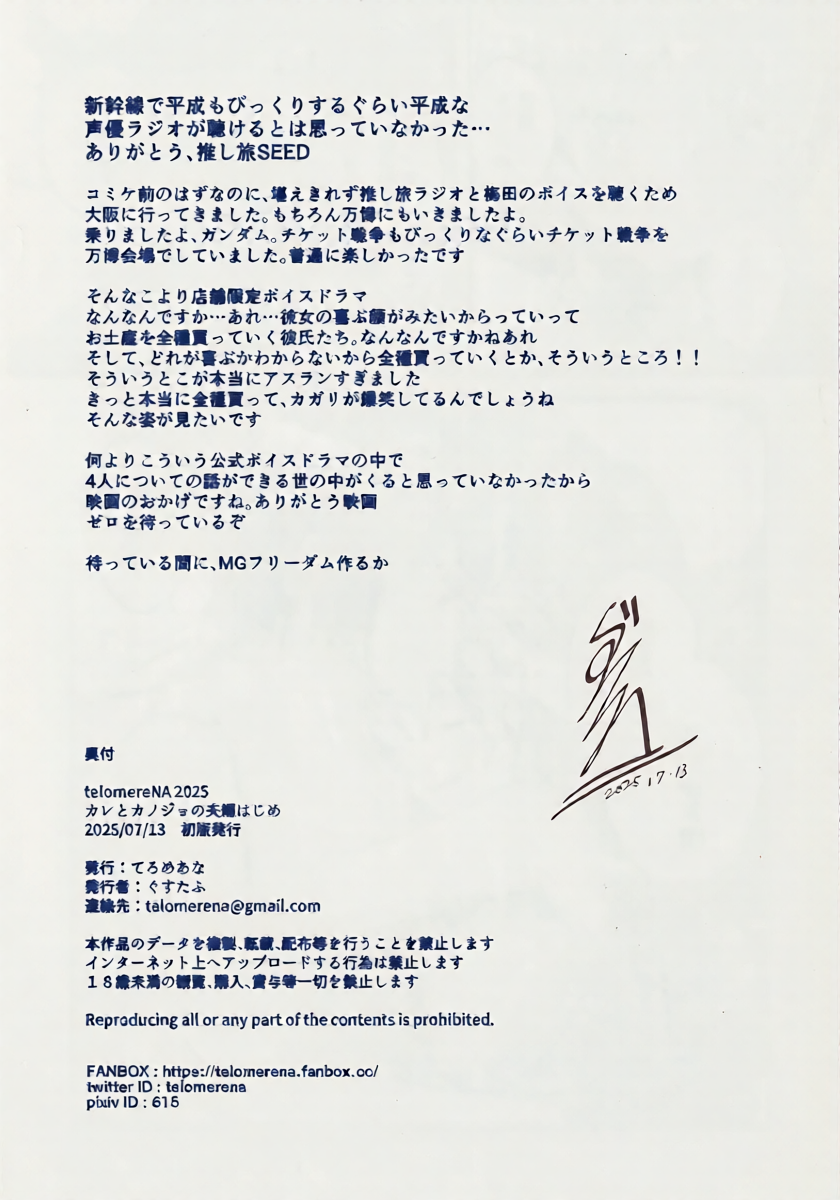 新幹線で平成もびっくりするぐらい平成な
声優ラジオが聴けるとは思っていなかった…
ありがとう、推し旅SEED
コミケ前のはずなのに、堪えきれず推し旅ラジオと梅田のボイスを聴くため
大阪に行ってきました。もちろん万博にもいきましたよ。
乗りましたよ、ガンダム。チケット戦争もびっくりなぐらいチケット戦争を
万博会場でしていました。普通に楽しかったです
そんなこより店舗限定ボイスドラマ
なんなんですか…あれ…彼女の喜ぶ顔がみたいからっていって
お土産を全種買っていく彼氏たち。なんなんですかねあれ
そして、どれが喜ぶかわからないから全種買っていくとか、そういうところ！！
そういうとこが本当にアスランすぎました
きっと本当に全種買って、カガリが爆笑してるんでしょうね
そんな姿が見たいです
何よりこういう公式ボイスドラマの中で
4人についての話ができる世の中がくると思っていなかったから
映画のおかげですね。ありがとう映画
ゼロを待っているぞ
待っている間に、MGフリーダム作るか
2025 17・13
奥付
telomereNA 2025
カレとカノジョの夫婦はじめ
2025/07/13 初版発行
発行：てろめあな
発行者：ぐすたふ
連絡先：talomerena@gmail.com
本作品のデータを複製、転載、配布等を行うことを禁止します
インターネット上へアップロードする行為は禁止します
１８歳未満の観覧、購入、貸与等一切を禁止します
Reproducing all or any part of the contents is prohibited.
FANBOX : https://telomerena.fanbox.cc/
twitter ID : telomerena
pixiv ID : 615